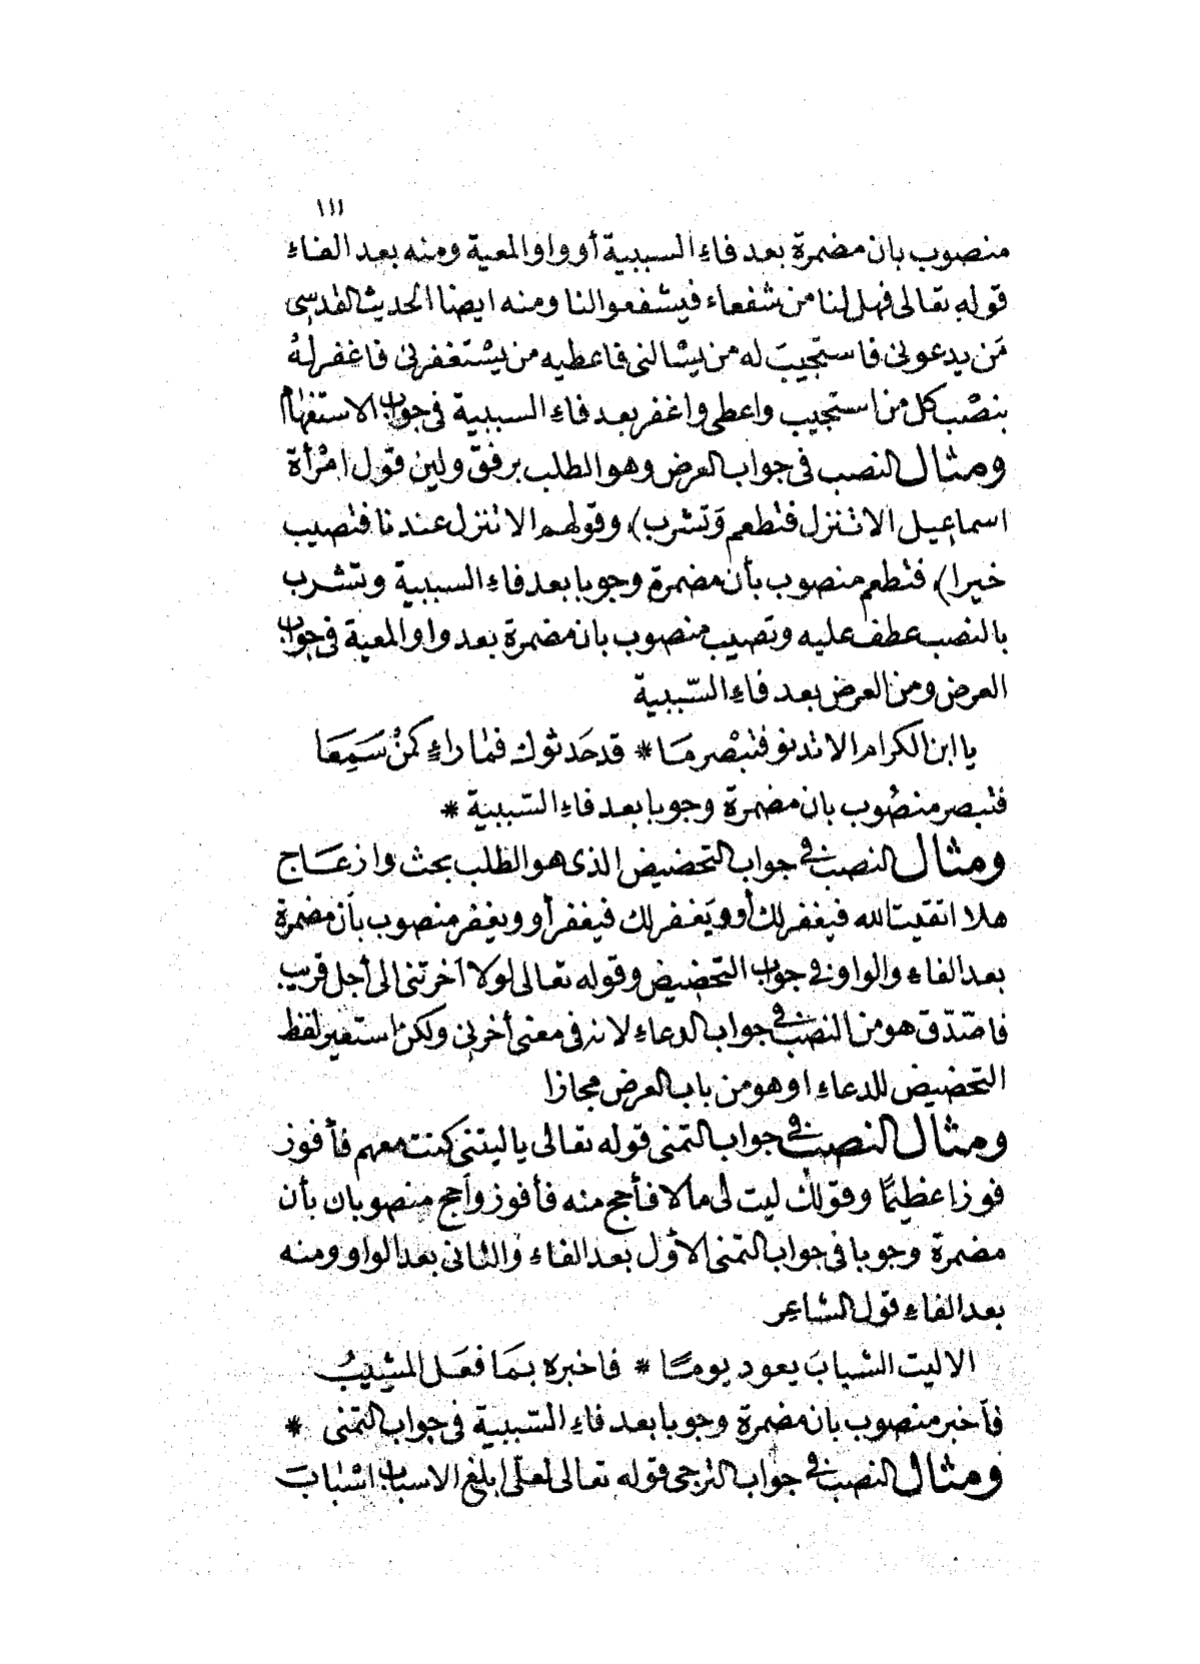 ١١١
منصوب بان مضمرة بعد فاء السببية أو واو المعية ومنه بعد الفاء
قوله تعالى فهل لنا من شفعاء فيشفعوا لنا ومنه ايضا الحديث القدسى
مَن يدعونى فاستجيبَ له من يسٔالنى فاعطيه من يسْتغفرنى فاغفر لهُ
بنصْب كل من استجيب واعطى واغفر بعد فاء السببية فى جواب الاستفهام
ومثال النصب فى جواب العرض وهو الطلب برفق ولين قول امْرأة
اسماعيل الا تنزل فتطعم وَتشرب) وقولهم الا تنزل عندنا فتصيب
خيرا) فتطعم منصوب بأن مضمرة وجوبا بعد فاء السببية وتشرب
بالنصب عطف عليه وتصيب منصوب بان مضمرة بعد واو المعية فى جواب
العرض ومن العرض بعد فاء السّببية
يا ابن الكرام الا تدنو فتبْصر مَا * قد حَدثوك فما راءٍ كمنْ سَمِعَا
فتبصر منصُوب بان مضمرة وجوبا بعد فاء السّببية *
ومثال النصب فى جواب التحضيض الذى هو الطلب بحث وازعَاج
هلا اتقيت الله فيغفر لك أو وَيَغفر لك فيغفر أو ويغفر منصوب بأن مضمرة
بعد الفاء والواو فى جواب التحضيض وقوله تعالى لولا اخرتنى الى أجل قريب
فاصّدّق هو من النصب فى جواب الدعاء لانه فى معنى أخرنى ولكن استعير لفظ
التحضيض للدعاء او هو من باب العرض مجازا
ومثال النصب فى جواب التمنى قوله تعالى يا ليتنى كنت معهم فأفوز
فوزا عظيمًا وقولك ليت لى مالا فأحج منه فأفوز وأحج منصوبان بأن
مضمرة وجوبا فى جواب التمنى الأول بعد الفاء والثانى بعد الواو ومنه
بعد الفاء قول الشاعِر
الا ليت الشبابَ يعود يومًا * فاخبره بمَا فعَل المشِيبُ
فأخبر منصوب بان مضمرة وجوبا بعد فاء السّببية فى جواب التمنى *
ومثال النصب فى جواب الترجى قوله تعالى لعلّى ابلغ الاسباب اسْبابَ